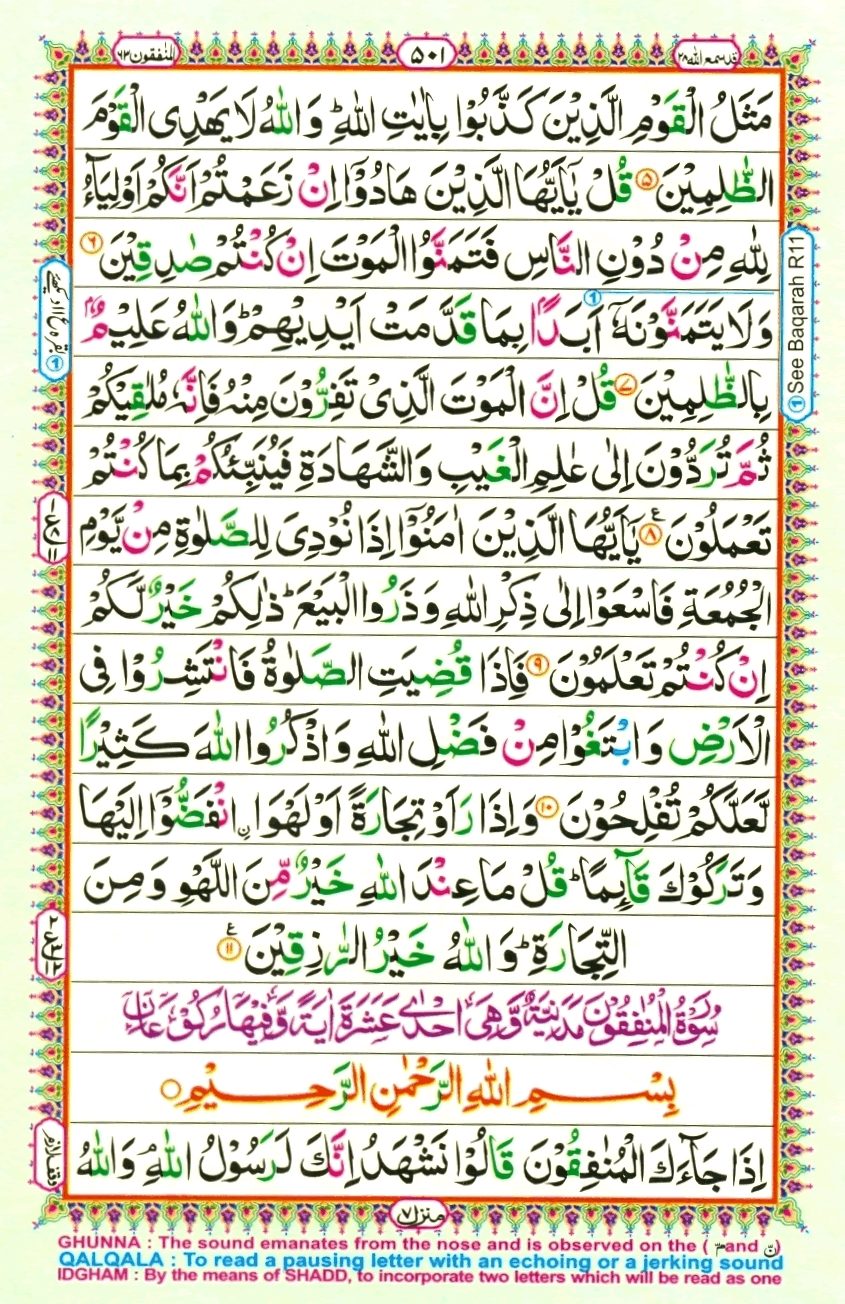 المنفقون ٦٣
٥٠١
قد سمع الله ٢٨
مَثَلُ الْقَوْمِ الَّذِيْنَ كَذَّبُوْا بِاٰيٰتِ اللّٰهِ ؕ وَاللّٰهُ لَا يَهْدِى الْقَوْمَ
الظّٰلِمِيْنَ ۵ قُلْ يٰۤاَيُّهَا الَّذِيْنَ هَادُوْۤا اِنْ زَعَمْتُمْ اَنَّكُمْ اَوْلِيَآءُ
لِلّٰهِ مِنْ دُوْنِ النَّاسِ فَتَمَنَّوُا الْمَوْتَ اِنْ كُنْتُمْ صٰدِقِيْنَ ۶
وَلَا يَتَمَنَّوْنَهٗۤ اَبَدًۢا بِمَا قَدَّمَتْ اَيْدِيْهِمْ ؕ وَاللّٰهُ عَلِيْمٌۢ
بِالظّٰلِمِيْنَ ۷ قُلْ اِنَّ الْمَوْتَ الَّذِىْ تَفِرُّوْنَ مِنْهُ فَاِنَّهٗ مُلٰقِيْكُمْ
ثُمَّ تُرَدُّوْنَ اِلٰى عٰلِمِ الْغَيْبِ وَالشَّهَادَةِ فَيُنَبِّئُكُمْ بِمَا كُنْتُمْ
تَعْمَلُوْنَ ۸ ع يٰۤاَيُّهَا الَّذِيْنَ اٰمَنُوْۤا اِذَا نُوْدِىَ لِلصَّلٰوةِ مِنْ يَّوْمِ
الْجُمُعَةِ فَاسْعَوْا اِلٰى ذِكْرِ اللّٰهِ وَذَرُوا الْبَيْعَ ؕ ذٰلِكُمْ خَيْرٌ لَّكُمْ
اِنْ كُنْتُمْ تَعْلَمُوْنَ ۹ فَاِذَا قُضِيَتِ الصَّلٰوةُ فَانْتَشِرُوْا فِى
الْاَرْضِ وَابْتَغُوْا مِنْ فَضْلِ اللّٰهِ وَاذْكُرُوا اللّٰهَ كَثِيْرًا
لَّعَلَّكُمْ تُفْلِحُوْنَ ۱۰ وَاِذَا رَاَوْ تِجَارَةً اَوْ لَهْوَا ۨانْفَضُّوْۤا اِلَيْهَا
وَتَرَكُوْكَ قَآئِمًا ؕ قُلْ مَا عِنْدَ اللّٰهِ خَيْرٌ مِّنَ اللَّهْوِ وَمِنَ
التِّجَارَةِ ؕ وَاللّٰهُ خَيْرُ الرّٰزِقِيْنَ ۱۱ ع
سُوْرَةُ الْمُنٰفِقُوْنَ مَدَنِيَّةٌ وَّهِىَ اِحْدٰى عَشَرَةَ اٰيَةً وَّفِيْهَا رُكُوْعَانِ
بِسْمِ اللّٰهِ الرَّحْمٰنِ الرَّحِيْمِ
اِذَا جَآءَكَ الْمُنٰفِقُوْنَ قَالُوْا نَشْهَدُ اِنَّكَ لَرَسُوْلُ اللّٰهِ ۘ وَاللّٰهُ
See Baqarah R11 ①
وقف لازم
منزل ۷
GHUNNA : The sound emanates from the nose and is observed on the ( مّ and نّ )
QALQALA : To read a pausing letter with an echoing or a jerking sound
IDGHAM : By the means of SHADD, to incorporate two letters which will be read as one